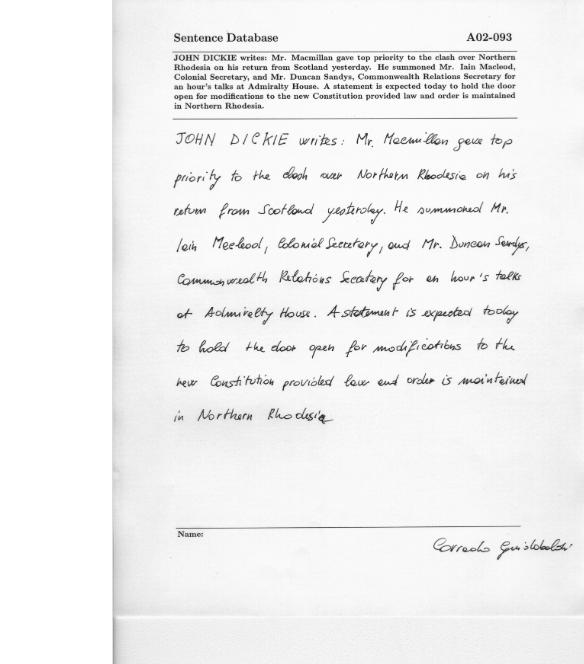 Sentence Database A02-093
JOHN DICKIE writes: Mr. Macmillan gave top priority to the clash over Northern
Rhodesia on his return from Scotland yesterday. He summoned Mr. Iain Macleod,
Colonial Secretary, and Mr. Duncan Sandys, Commonwealth Relations Secretary for
an hour's talks at Admiralty House. A statement is expected today to hold the door
open for modifications to the new Constitution provided law and order is maintained
in Northern Rhodesia.
JOHN DICKIE writes: Mr. Macmillan gave top
priority to the clash over Northern Rhodesia on his
return from Scotland yesterday. He summoned Mr.
Iain Macleod, Colonial Secretary, and Mr. Duncan Sandys,
Commonwealth Relations Secretary for an hour's talks
at Admiralty House. A statement is expected today
to hold the door open for modifications to the
new Constitution provided law and order is maintained
in Northern Rhodesia
Name: